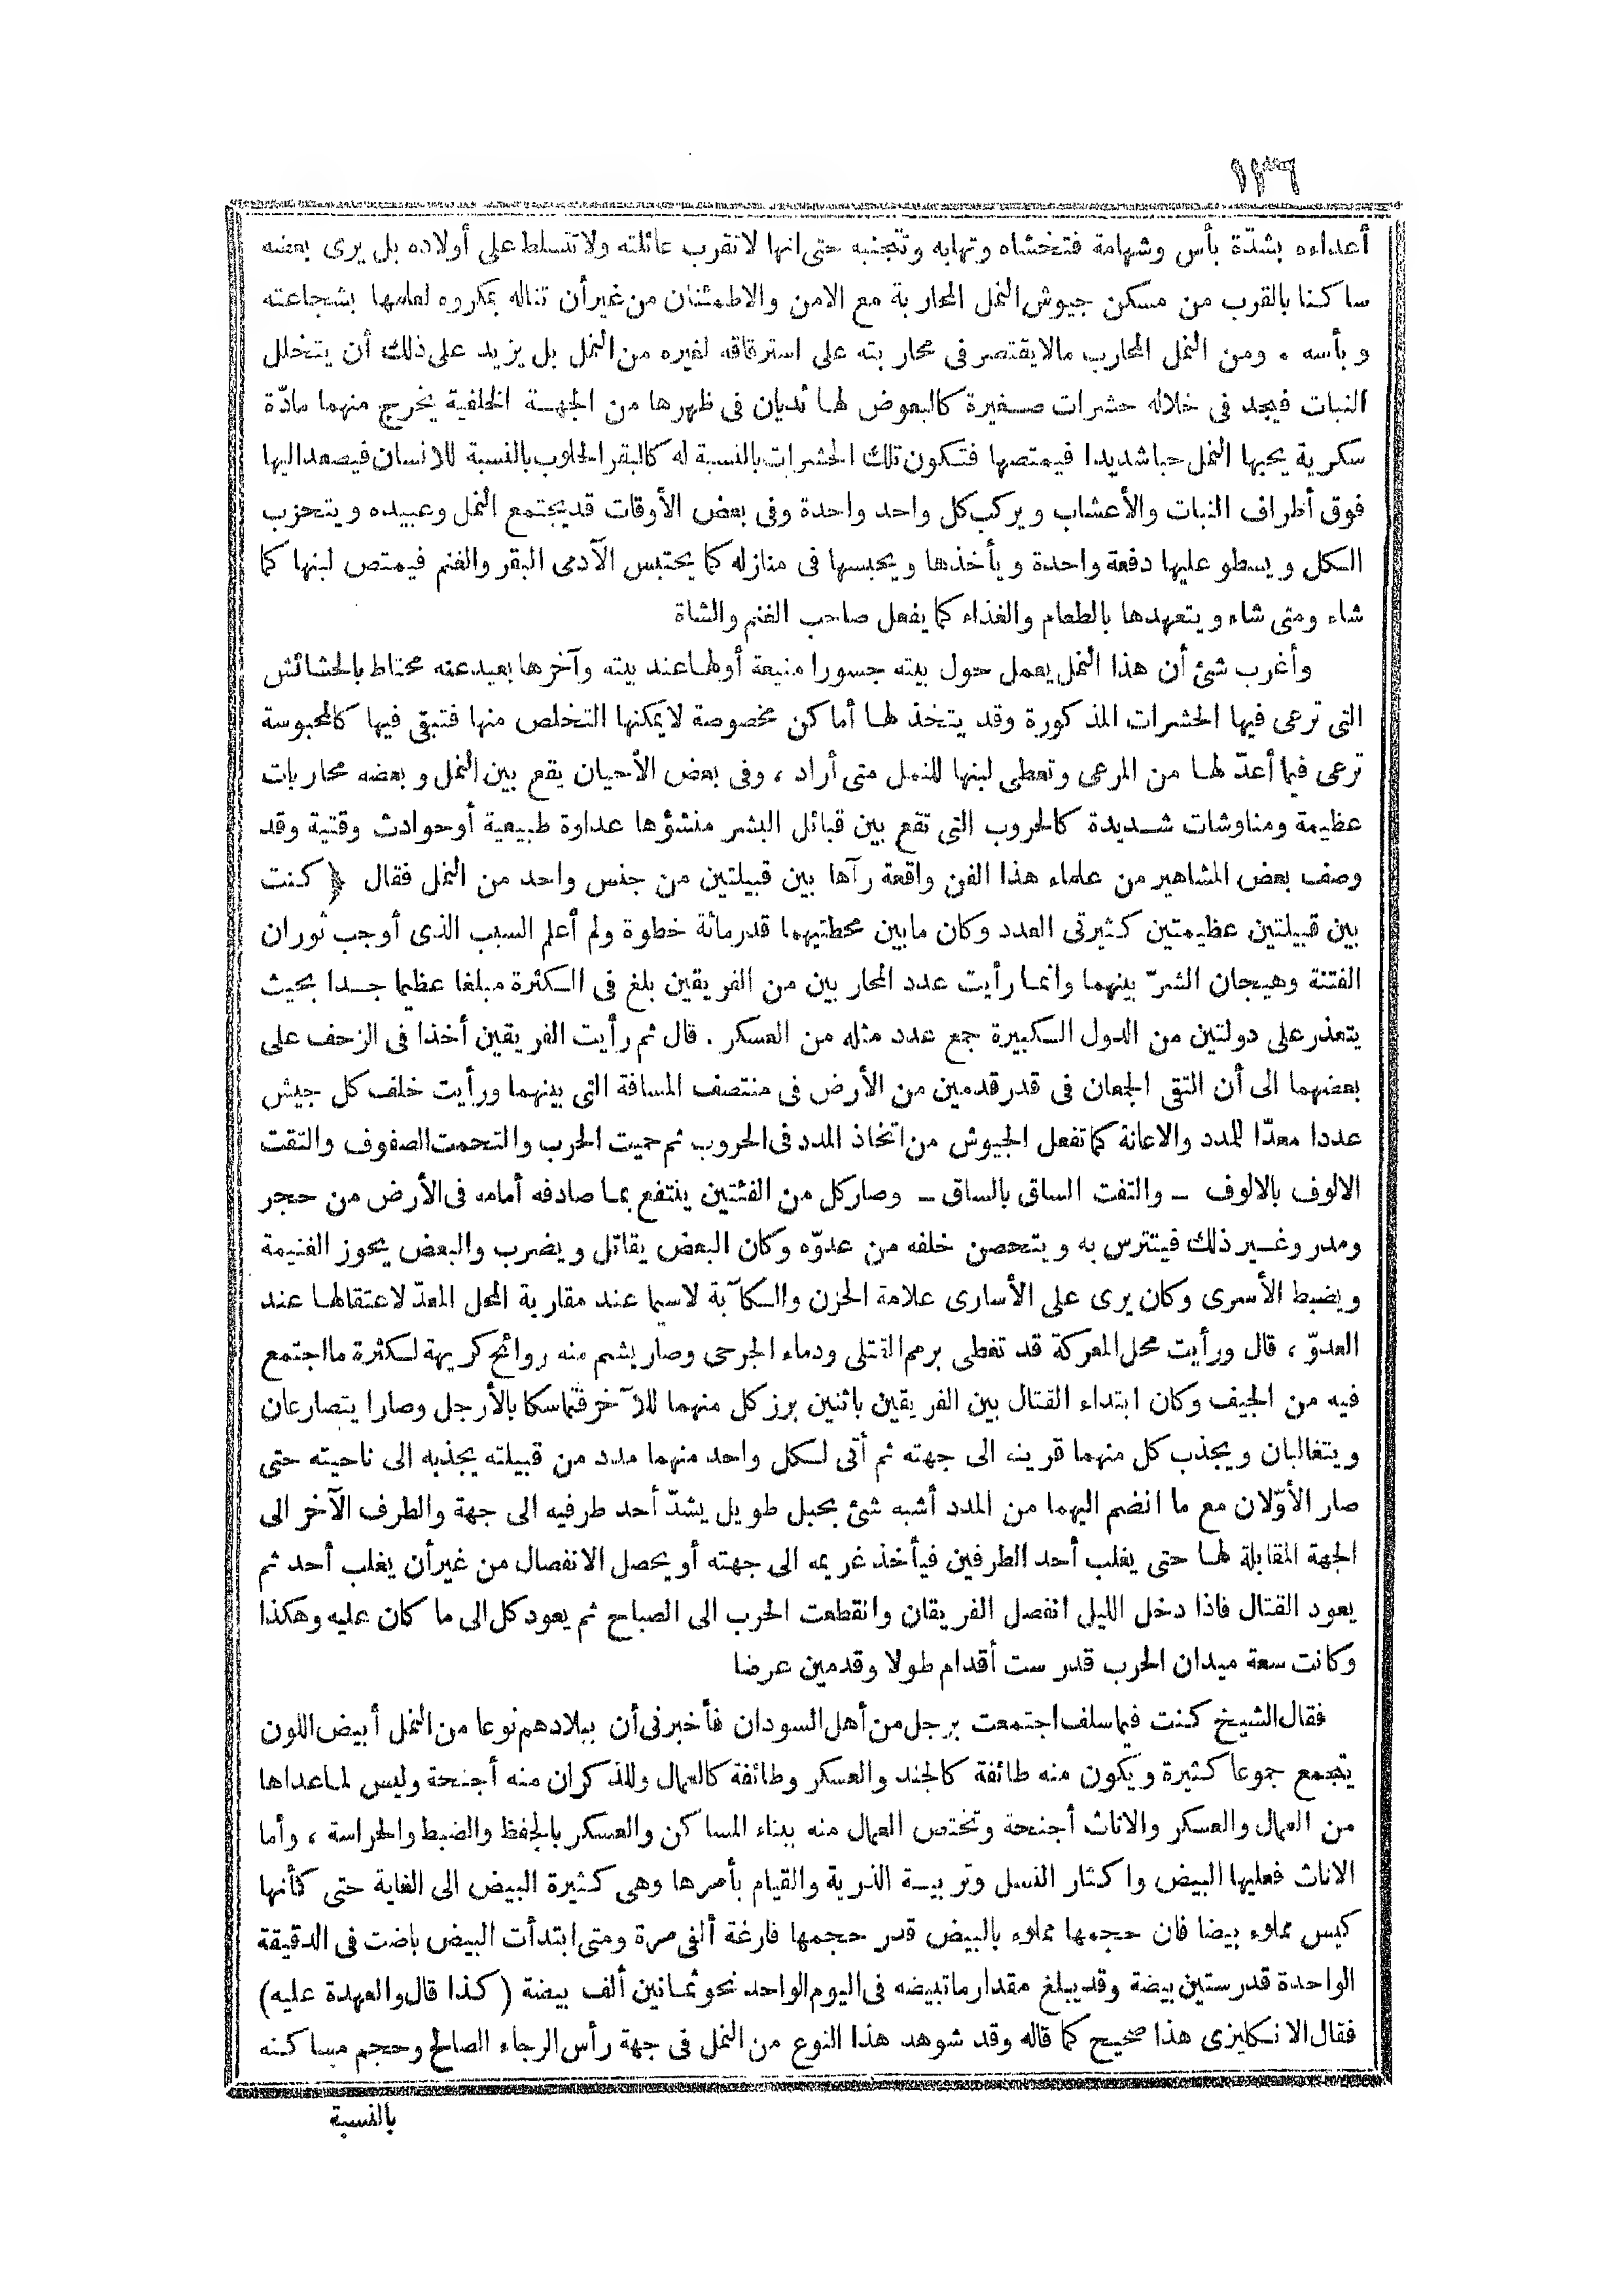 ١٣٦
أعداءه بشدّة بأس وشهامة فتخشاه وتهابه وتتجنبه حتى انها لا تقرب عائلته ولا تتسلط على أولاده بل يرى بعضه
ساكنا بالقرب من مسكن جيوش النمل المحاربة مع الامن والاطمئنان من غير أن تناله بمكروه لعلمها بشجاعته
وبأسه . ومن النمل المحارب مالا يقتصر فى محاربته على استرقاقه لغيره من النمل بل يزيد على ذلك أن يتخلل
النبات فيجد فى خلاله حشرات صغيرة كالبعوض لها ثديان فى ظهرها من الجهة الخلفية يخرج منهما مادّة
سكرية يحبها النمل حبا شديدا فيمتصها فتكون تلك الحشرات بالنسبة له كالبقر الحلوب بالنسبة للانسان فيصعد اليها
فوق أطراف النبات والأعشاب ويركب كل واحد واحدة وفى بعض الأوقات قد يجتمع النمل وعبيده ويتحزب
الكل ويسطو عليها دفعة واحدة ويأخذها ويحبسها فى منازله كما يحتبس الآدمى البقر والغنم فيمتص لبنها كما
شاء ومتى شاء ويتعهدها بالطعام والغذاء كما يفعل صاحب الغنم والشاة
وأغرب شئ أن هذا النمل يعمل حول بيته جسورا منيعة أولها عند بيته وآخرها بعيد عنه محتاط بالحشائش
التى ترعى فيها الحشرات المذكورة وقد يتخذ لها أماكن مخصوصة لا يمكنها التخلص منها فتبقى فيها كالمحبوسة
ترعى فيما أعدّ لها من المرعى وتعطى لبنها للنمل متى أراد ، وفى بعض الأحيان يقع بين النمل وبعضه محاربات
عظيمة ومناوشات شديدة كالحروب التى تقع بين قبائل البشر منشؤها عداوة طبيعية أو حوادث وقتية وقد
وصف بعض المشاهير من علماء هذا الفن واقعة رآها بين قبيلتين من جنس واحد من النمل فقال ﴿ كنت
بين قبيلتين عظيمتين كثيرتى العدد وكان مابين محطتيهما قدر مائة خطوة ولم أعلم السبب الذى أوجب ثوران
الفتنة وهيجان الشرّ بينهما وانما رأيت عدد المحاربين من الفريقين بلغ فى الكثرة مبلغا عظيما جدا بحيث
يتعذر على دولتين من الدول الكبيرة جمع عدد مثله من العسكر . قال ثم رأيت الفريقين أخذا فى الزحف على
بعضهما الى أن التقى الجمعان فى قدر قدمين من الأرض فى منتصف المسافة التى بينهما ورأيت خلف كل جيش
عددا معدّا للمدد والاعانة كما تفعل الجيوش من اتخاذ المدد فى الحروب ثم حميت الحرب والتحمت الصفوف والتقت
الالوف بالالوف ـ والتفت الساق بالساق ـ وصار كل من الفئتين ينتفع بما صادفه أمامه فى الأرض من حجر
ومدر وغير ذلك فيتترس به ويتحصن خلفه من عدوّه وكان البعض يقاتل ويضرب والبعض يحوز الغنيمة
ويضبط الأسرى وكان يرى على الأسارى علامة الحزن والكآبة لاسيما عند مقاربة المحل المعدّ لاعتقالها عند
العدوّ ، قال ورأيت محل المعركة قد تغطى برمم القتلى ودماء الجرحى وصار يشم منه روائح كريهة لكثرة ما اجتمع
فيه من الجيف وكان ابتداء القتال بين الفريقين باثنين برز كل منهما للآخر فتماسكا بالأرجل وصارا يتصارعان
ويتغالبان ويجذب كل منهما قرينه الى جهته ثم أتى لكل واحد منهما مدد من قبيلته يجذبه الى ناحيته حتى
صار الأوّلان مع ما انضم اليهما من المدد أشبه شئ بحبل طويل يشدّ أحد طرفيه الى جهة والطرف الآخر الى
الجهة المقابلة لها حتى يغلب أحد الطرفين فيأخذ غريمه الى جهته أو يحصل الانفصال من غير أن يغلب أحد ثم
يعود القتال فاذا دخل الليل انفصل الفريقان وانقطعت الحرب الى الصباح ثم يعود كل الى ما كان عليه وهكذا
وكانت سعة ميدان الحرب قدر ست أقدام طولا وقدمين عرضا
فقال الشيخ كنت فيما سلف اجتمعت برجل من أهل السودان فأخبرنى أن ببلادهم نوعا من النمل أبيض اللون
يتجمع جموعا كثيرة ويكون منه طائفة كالجند والعسكر وطائفة كالعمال وللذكران منه أجنحة وليس لما عداها
من العمال والعسكر والاناث أجنحة وتختص العمال منه ببناء المساكن والعسكر بالحفظ والضبط والحراسة ، وأما
الاناث فعليها البيض واكثار النسل وتربية الذرية والقيام بأمرها وهى كثيرة البيض الى الغاية حتى كأنها
كيس مملوء بيضا فان حجمها مملوء بالبيض قدر حجمها فارغة ألفى مرة ومتى ابتدأت البيض باضت فى الدقيقة
الواحدة قدر ستين بيضة وقد يبلغ مقدار ما تبيضه فى اليوم الواحد نحو ثمانين ألف بيضة (كذا قال والعهدة عليه)
فقال الانكليزى هذا صحيح كما قاله وقد شوهد هذا النوع من النمل فى جهة رأس الرجاء الصالح وحجم مساكنه
بالنسبة